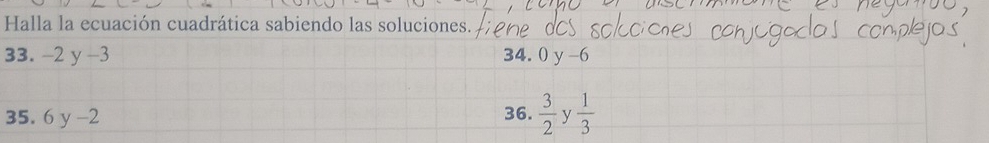 Halla la ecuación cuadrática sabiendo las soluciones. tiene dos soluciones conjugadas complejas.
33. –2 y –3
34. 0 y –6
35. 6 y –2
36. 3/2 y 1/3